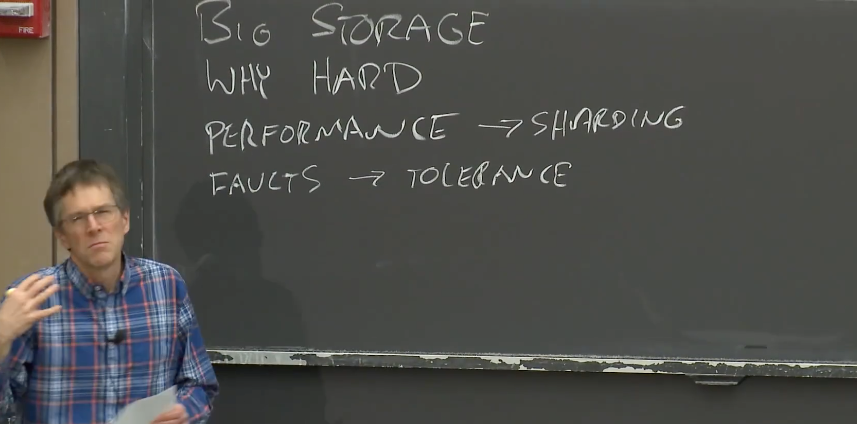 FIRE
BIG STORAGE
WHY HARD
PERFORMANCE → SHARDING
FAULTS → TOLERANCE